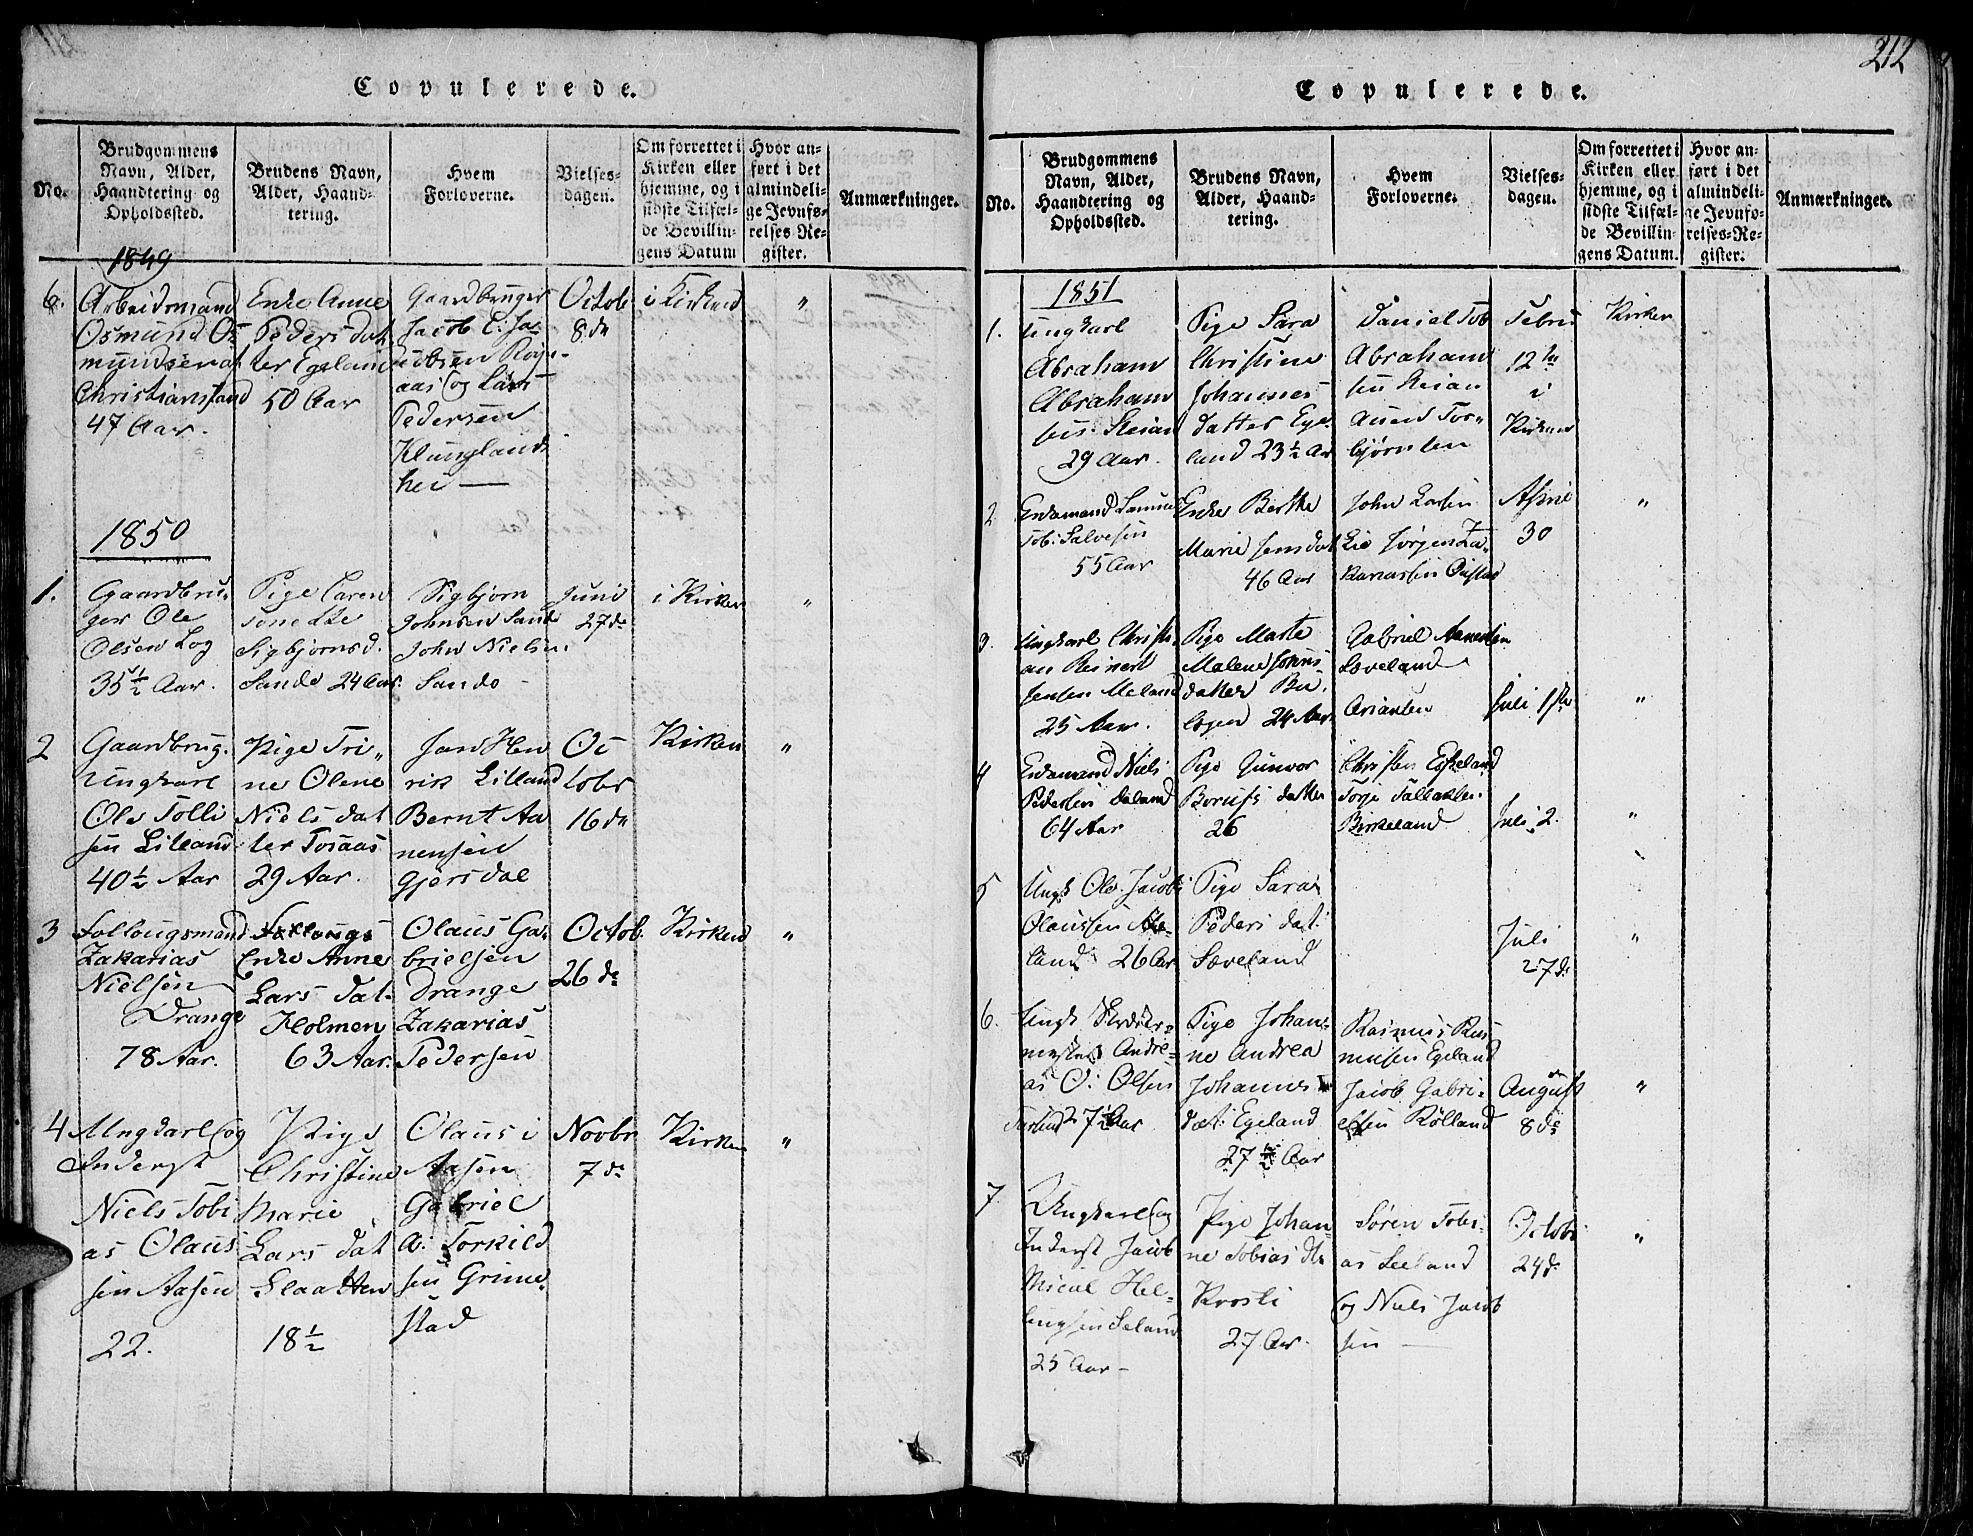 Copulerede.
No.
Brudgommens
Navn, Alder,
Haandtering og
Opholdssted.
Brudens Navn,
Alder, Haand-
tering.
Hvem
Forloverne.
Vielses-
dagen.
Om forrettet i
Kirken eller
hjemme, og i
sidste Tilfæl-
de Bevillin-
gens Datum
Hvor an-
ført i det
almindeli-
ge Jevnfø-
relses Re-
gister.
Anmærkninger.
1849
6.
Arbeidsmand
Osmund Os
mundsen at
Christiansand
47 Aar.
Enke Anne
Peders dat
ter Egeland
50 Aar
Gaardbruger
Jacob C: Ja
cobsen
aas og Lars
Pedersen
Klunglands
hei —
Octob
8de
i Kirken
"
1850
1.
Gaardbru-
ger Ole
Olsen Log
35½ Aar.
Pige Caren
Tonette
Sigbjørnsd.
Sande 24 Aar.
Sigbjørn
Johnsen Sande
John Nielsen
Sande -
Juni
27de
i Kirken
"
2
Gaardbrug.
Ungkarl
Ole Tolli
sen Lilland
40½ Aar
Pige Tri„
ne Olene
Niels dat
ter Tosaas
29 Aar.
Jan Hen
rik Lilland
Bernt Aa
nensen
Gjersdal
Oc
tobr
16de
Kirken
"
3
Follougsmand
Zakarias
Nielsen
Drange
78 Aar.
Follougs
Enke Anne
Lars dat.
Holmen
63 Aar.
Olaus Ga-
brielsen
Drange
Zakarias
Pedersen
Octob.
26de
Kirken
"
4
Ungkarl og
Inderst
Niels Tobi
as Olaus
sen Aasen
22.
Pige
Christine
Marie
Lars dat
Slaatten
18½
Olaus i
Aasen
Gabriel
A: Torkild
sen Grime
stad
Novbr
7de
Kirken
"
212
Copulerede.
No.
Brudgommens
Navn, Alder,
Haandtering og
Opholdssted.
Brudens Navn,
Alder, Haand-
tering.
Hvem
Forloverne.
Vielses-
dagen.
Om forrettet i
Kirken eller
hjemme, og i
sidste Tilfæl-
de Bevillin-
gens Datum.
Hvor an-
ført i det
almindeli-
ge Jevnfø-
relses-Re-
gister.
Anmærkninger.
1851
1.
Ungkarl
Abraham
Abraham
sen
29 Aar.
Pige Sara
Christine
Johannes
datter Ege
land 23½ Aar
Daniel Tob
Abraham
sen
Aanen Tor„
bjørnsen
Febru
12te
i
Kirken
Kirken
2
Enkemand Samuel
Tob: Salvesen
55 Aar
Enke Berthe
Marie Jens dat
46 Aar
John Larsen
Lie Jørgen Za-
kariassen
April
30
"
3.
Ungkarl Christi
an Reinert
Jensen Meland
25 Aar.
Pige Marte
Malene Johns
datter Bu
24 Aar
Gabriel Aanensen
Loveland
Juli 1ste
"
4
Enkemand Niels
Pedersen Daland
64 Aar
Pige Gunvor
datter
26
Christen Eskeland
Torje Tallaksen
Birkeland
Juli 2.
"
5
Ungk Ole Jacob
Olaussen
land 26 Aar
Pige Sara
Peders dat:
Loveland
Juli
27de
"
6.
Ungk
Andre-
as O: Olsen
27½ Aar
Pige Johan-
ne Andrea
Johannes
dat: Egeland
27 ½ Aar
Rasmus Ras
musen Egeland
Jacob Gabri-
elsen Rølland
August
8de
"
7.
Ungkarl og
Inderst Jacob
Micael Hel-
25 Aar —
Pige Johan
ne Tobias dtr
27 Aar.
Søren Tobi-
as
og Niels Jacob
sen —
Octobr
24de
"